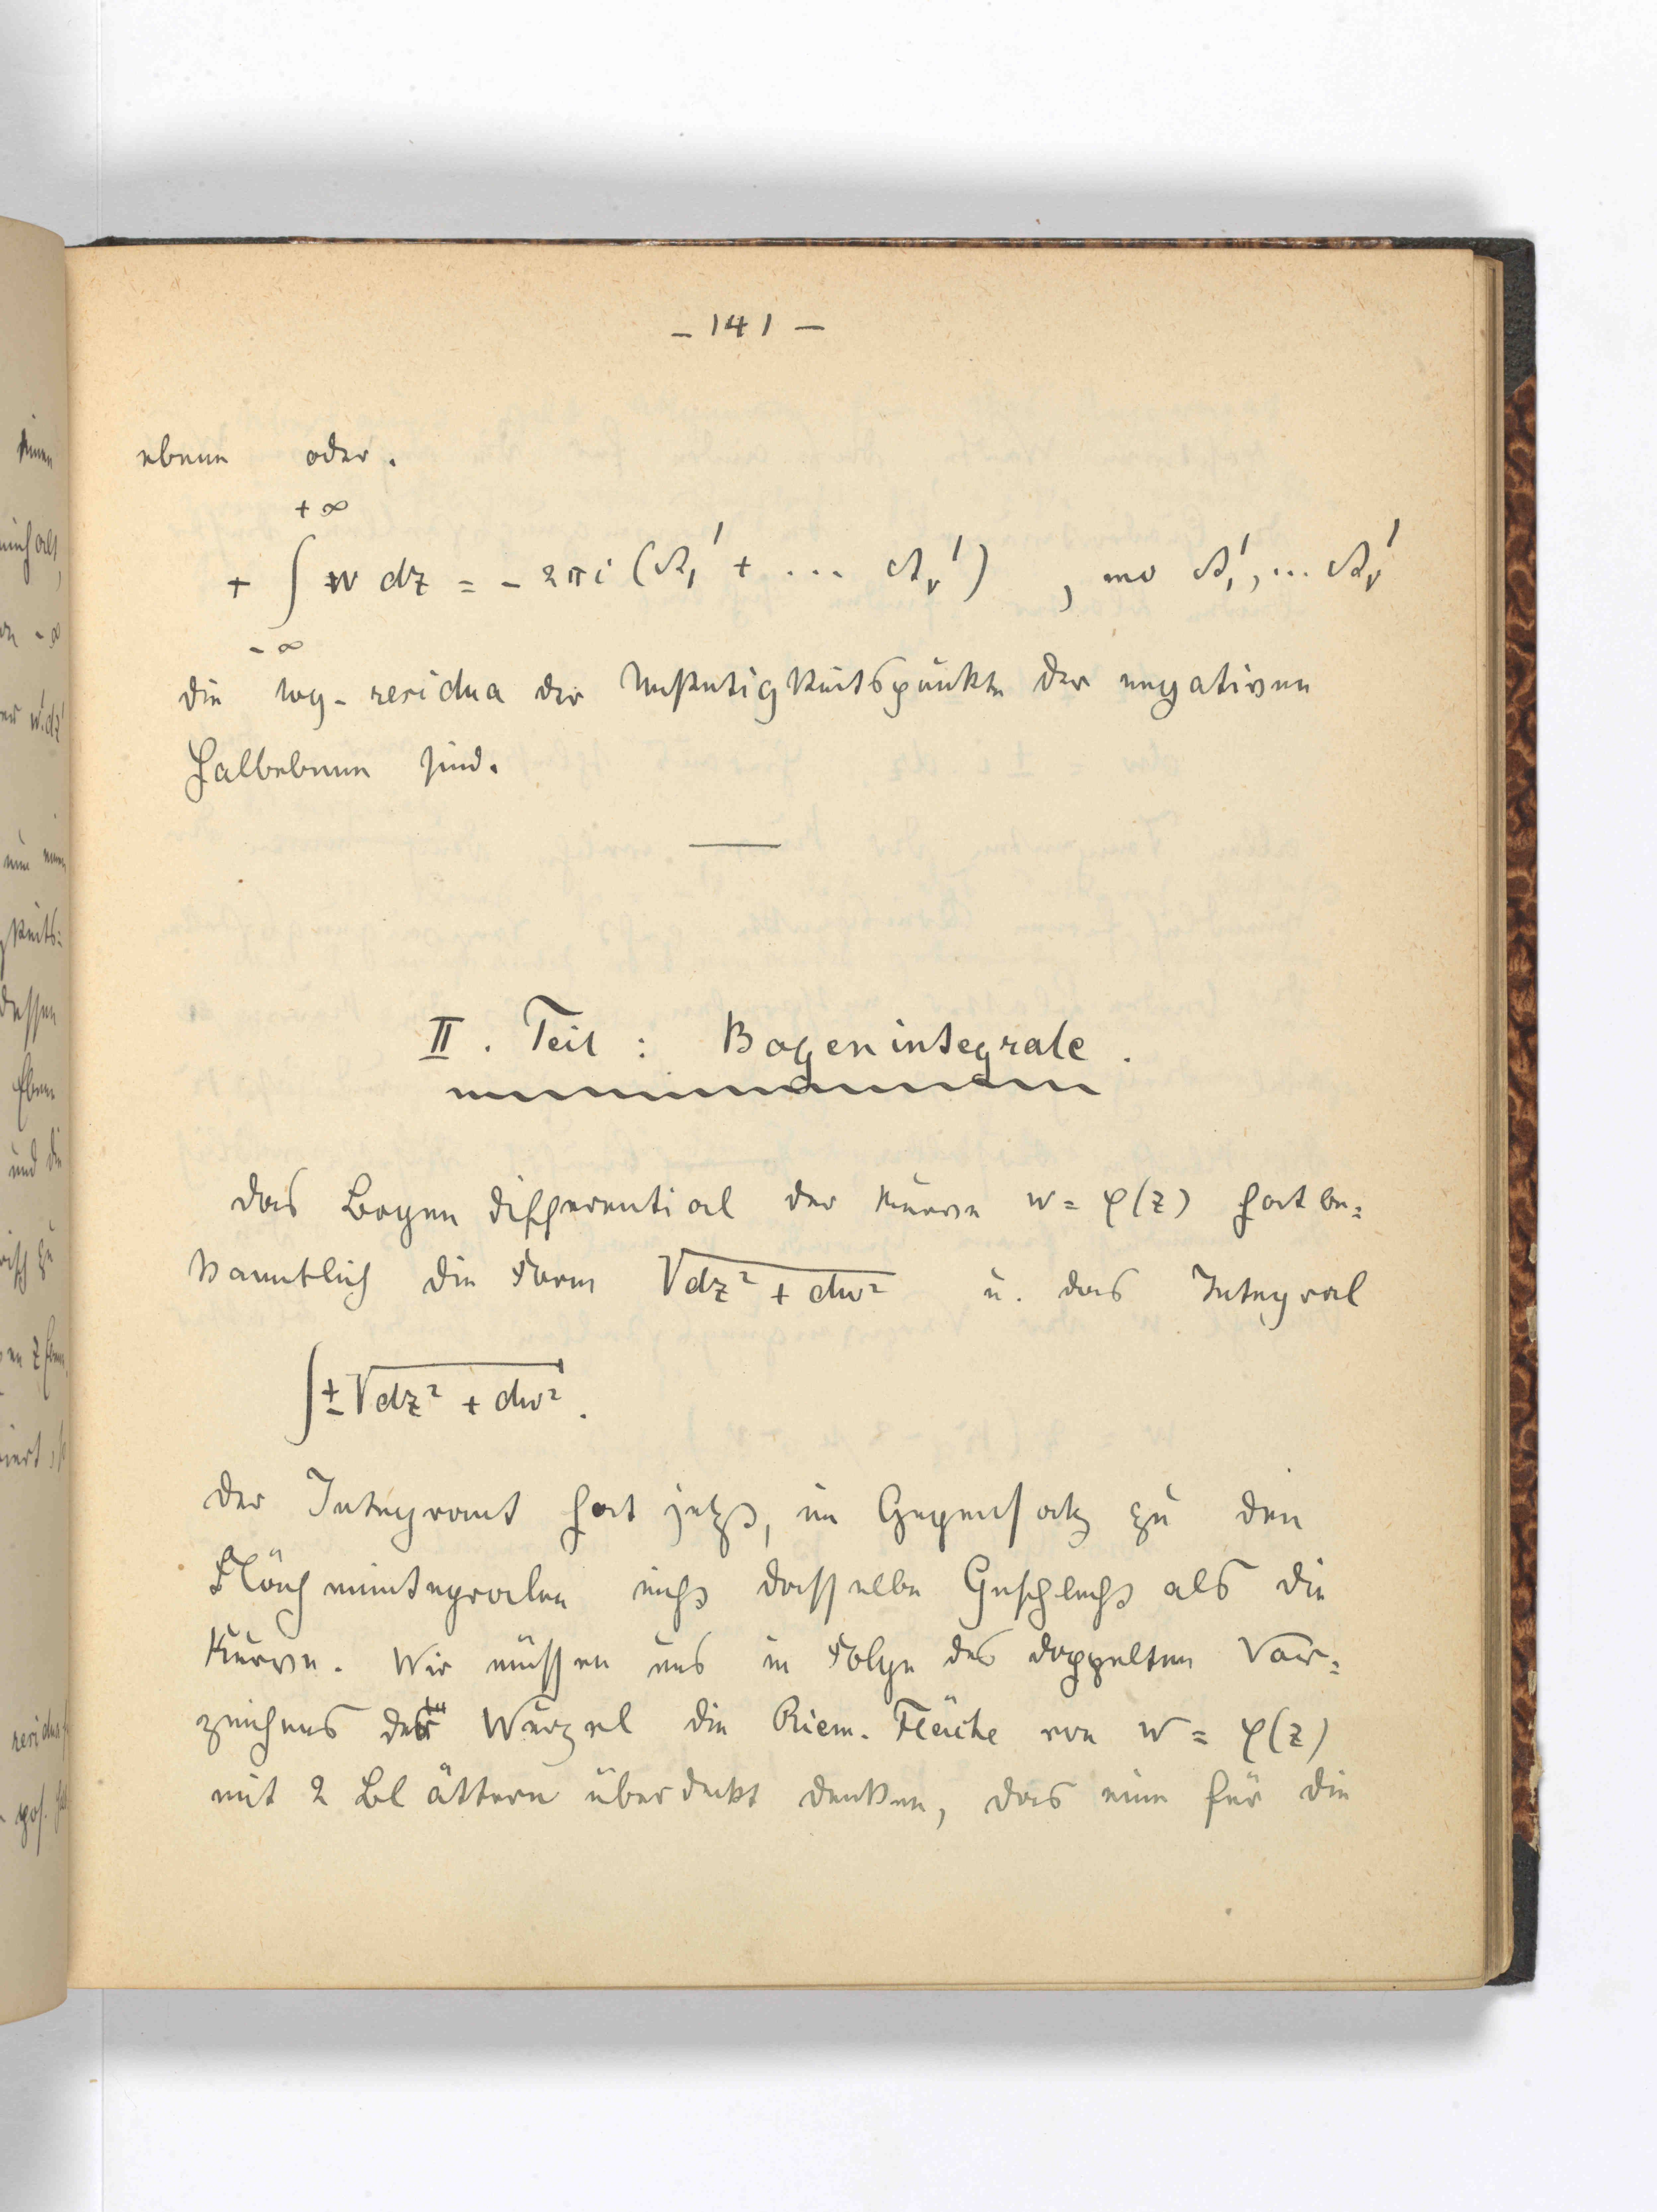 - 141 -
ebene oder.
+ ∞
+ ∫ w dz = - 2πi (A₁' + ... Aᵣ') , wo A₁', ... Aᵣ'
- ∞
die log- residua der Unstetigkeitspunkte der negativen
Halbebene sind.
II. Teil : Bogenintegrale.
Das Bogendifferential der Kurve w = φ(z) hat be=
kanntlich die Form √dz² + dw² u. das Integral
∫ ± √dz² + dw².
Der Integrant hat jetzt, im Gegensatz zu den
Flächenintegralen nicht dasselbe Geschlecht als die
Kurve. Wir müssen uns in Folge des doppelten Vor=
zeichens der Wurzel die Riem. Fläche von w = φ(z)
mit 2 Blättern überdeckt denken, das eine für die